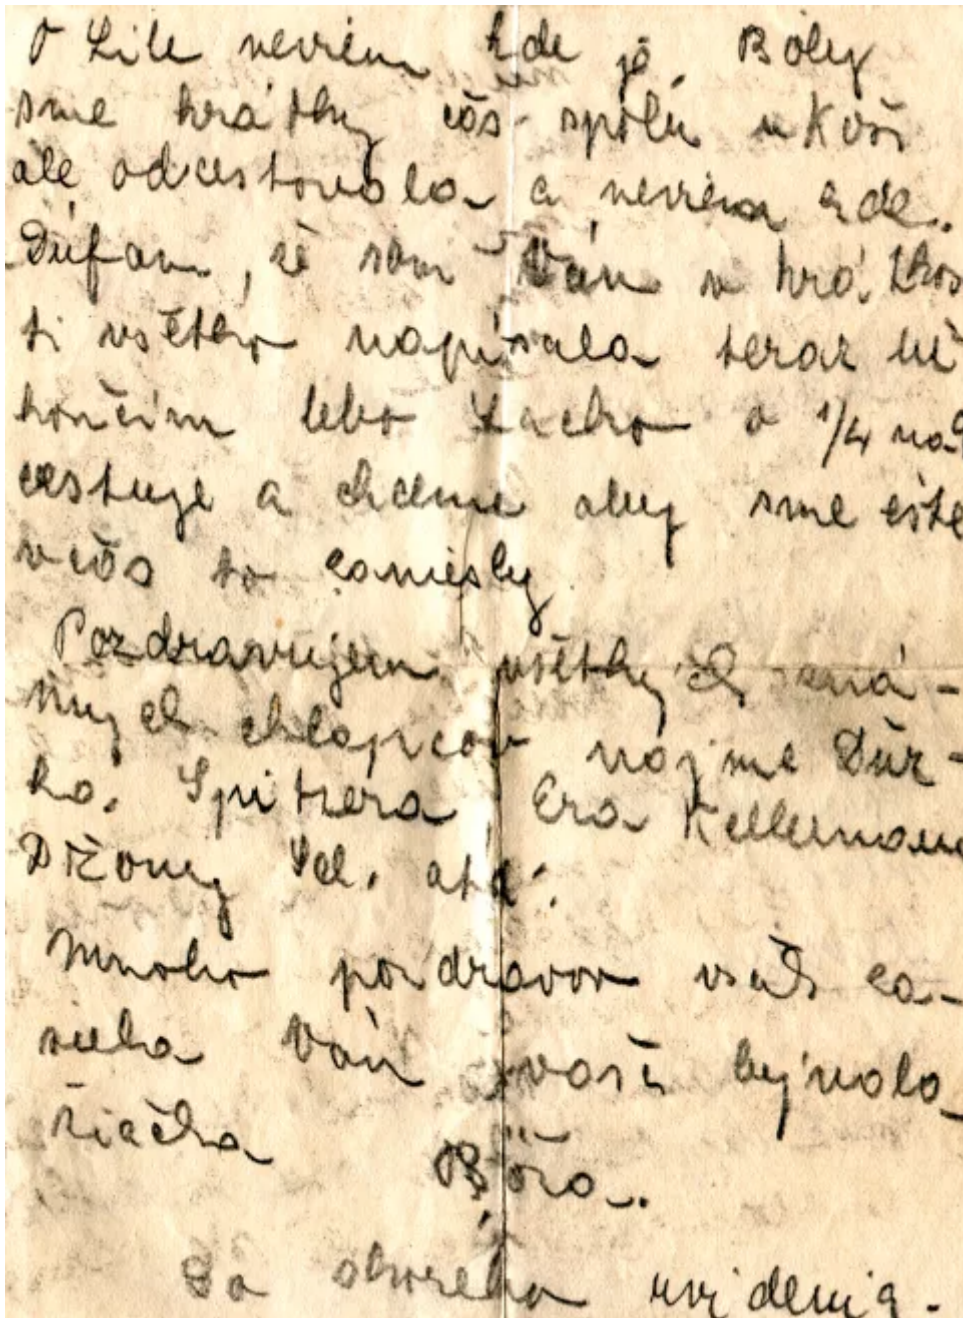 O Lile neviem kde je. Boly
sme krátky čas spolu v Koši
ale odcestovala a neviem kde.
Dúfam, že som Vám v krátkos
ti všetko napísala teraz už
končím lebo Lacko o 1/4 na 9
cestuje a chceme aby sme ešte
včas to zaniesly
Pozdravujem všetkých zná-
mych chlapcov najme Ďur-
ka. Spitzera Era Kellermana
Džony atď.
Mnoho pozdravov vs
Vám vaša bývala
žiačka
Bőža.
Do skorého uvidenia.